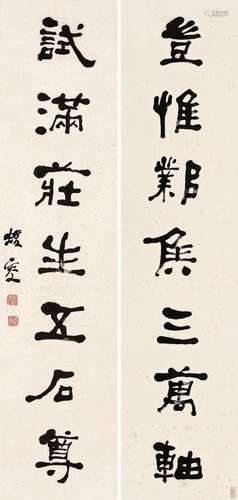 豈惟鄴矦三萬軸
試滿莊生五石尊
蝯叟